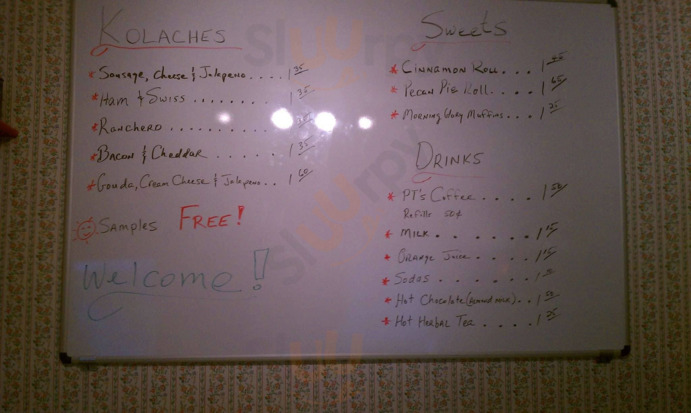 KOLACHES
* Sausage, Cheese & Jalapeno .... 1 35
* Ham & Swiss ....... 1 35
* Ranchero ...........
* Bacon & Cheddar ....... 1 35
* Gouda, Cream Cheese & Jalapeno .. 1 60
Samples FREE!
Welcome!
Sweets
* Cinnamon Roll ... 1
* Pecan Pie Roll .... 1 65
* Morning Glory Muffins ... 1 25
DRINKS
* PT's Coffee .... 1 50
Refills 50¢
* Milk . . . . . . 1
* Orange Juice ..... 1
* Sodas . . . . . . . 1
* Hot Chocolate ... 1 50
* Hot Herbal Tea .... 1 25
Slurrpy